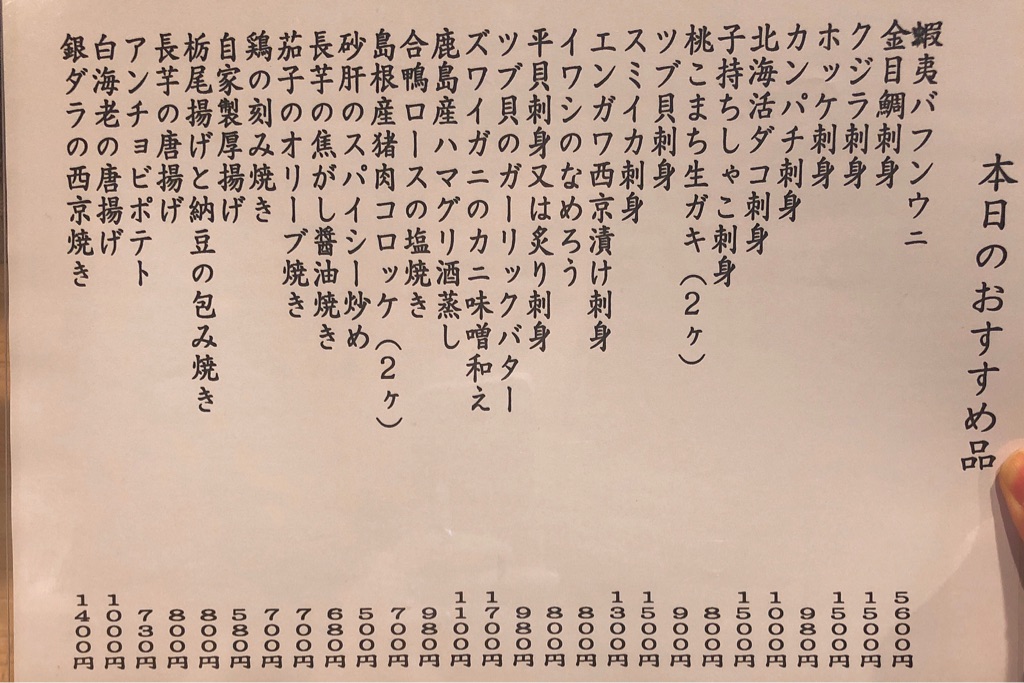 本日のおすすめ品
蝦夷バフンウニ
金目鯛刺身
クジラ刺身
ホッケ刺身
カンパチ刺身
北海活ダコ刺身
子持ちしゃこ刺身
桃こまち生ガキ(2ヶ)
ツブ貝刺身
スミイカ刺身
エンガワ西京漬け刺身
イワシのなめろう
平貝刺身又は炙り刺身
ツブ貝のガーリックバター
ズワイガニのカニ味噌和え
鹿島産ハマグリ酒蒸し
合鴨ロースの塩焼き
島根産猪肉コロッケ(2ヶ)
砂肝のスパイシー炒め
長芋の焦がし醤油焼き
茄子のオリーブ焼き
鶏の刻み焼き
自家製厚揚げ
栃尾揚げと納豆の包み焼き
長芋の唐揚げ
アンチョビポテト
白海老の唐揚げ
銀ダラの西京焼き
5600円
1500円
1500円
980円
1000円
1500円
800円
900円
1500円
1300円
800円
800円
980円
1700円
1100円
980円
700円
500円
680円
700円
700円
580円
800円
800円
730円
1000円
1400円